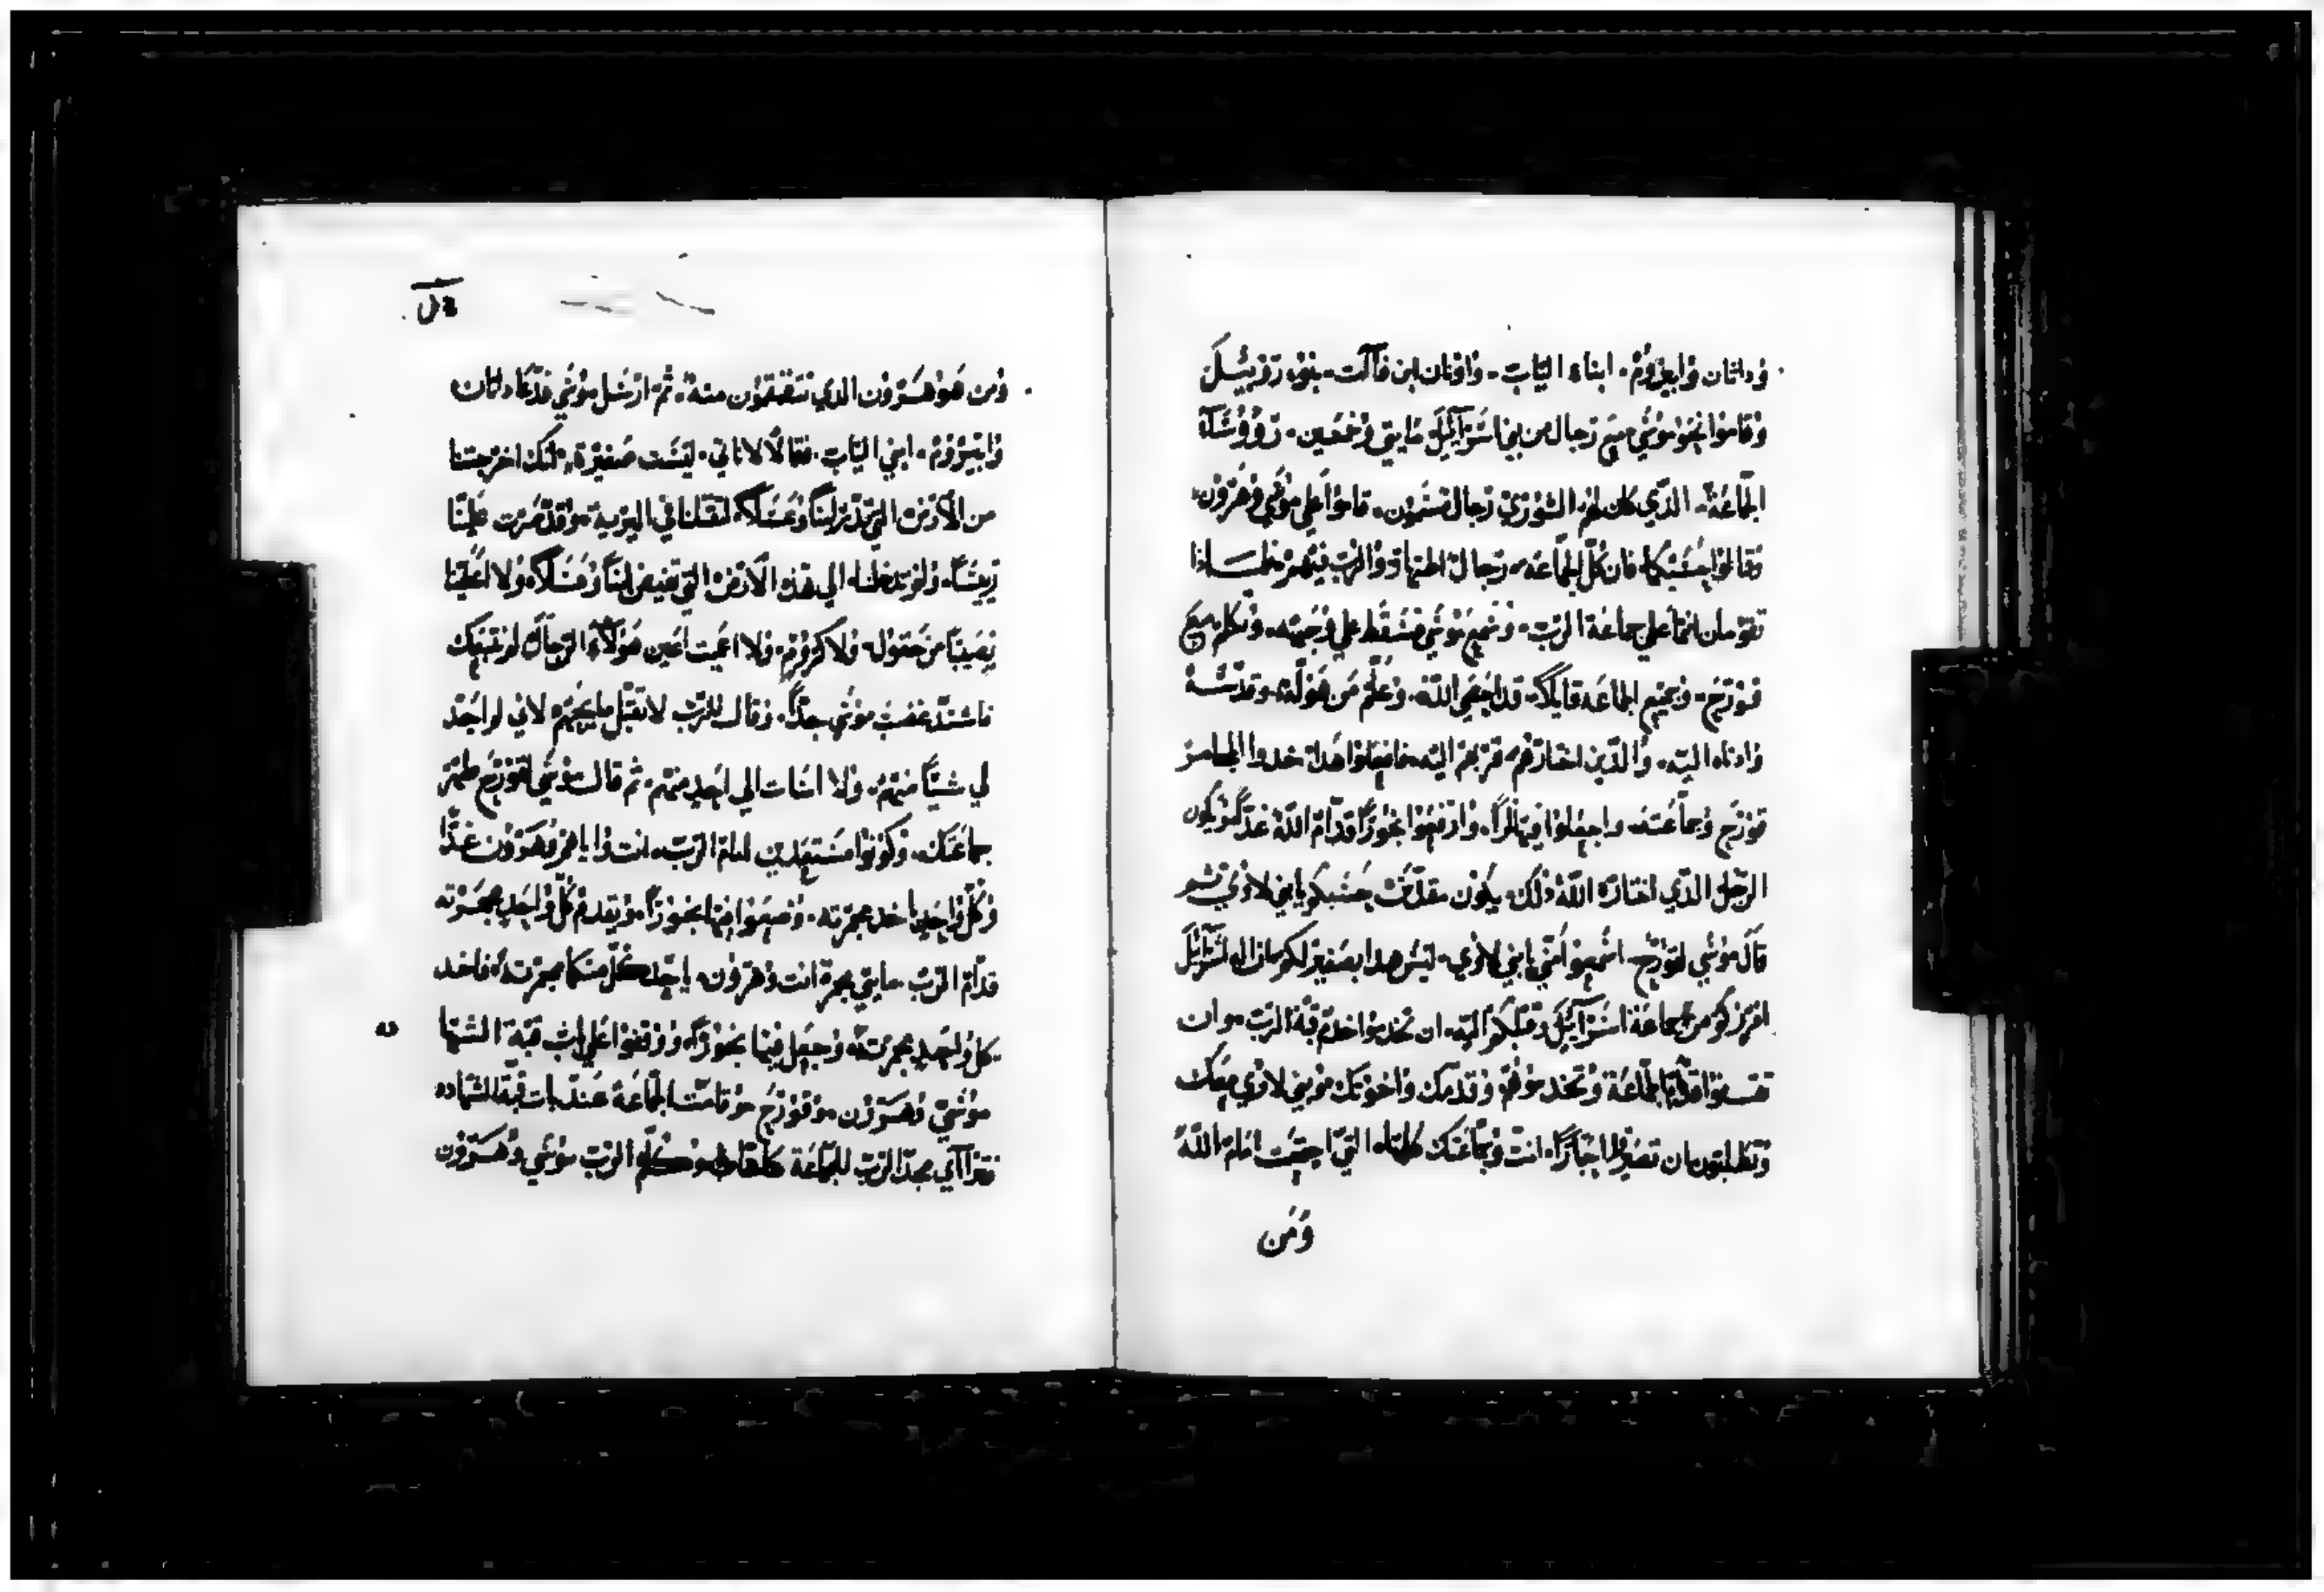 وداثان وابيروم. ابناء الياب. واونان ابن فالت. بنوا روبيل
وقاموا نحو موسي معهم رجال من بني اسرآئيل مايتي وخمسين. رووسآء
الجماعة. الذي كان لهم الشوري رجال قسمون. قاموا علي موسي وهرون
وقالوا حسبكما فان كل الجماعه رجال اطهار والرب فيهم فلماذا
تقومان انتما علي جماعة الرب. وسمع موسي فسقط علي وجهه. وكلم مع
قورح. وجميع الجماعه قايلاً. قد احصي الله. وعلم من هو له. وقدسه
وادناه اليه. والذين اختارهم قربهم اليه. فافعلوا هدا خدوا المجامر
قورح وجماعته. واجعلوا فيها ناراً. وارفعوا بخوراً قدام الله غداً ويكون
الرجل الذي اختاره الله ذلك يكون مقدس حسبكم يا بني لاوي ثم
قال موسي لقورح. اسمعوا مني يا بني لاوي. ليس هدا بصغير لكم ان اله اسرآئيل
افرزكم من جماعة اسرآئيل وقبلكم اليه. ان تخدموا خدم قبة الرب وان
تقوموا قدام الجماعة وتخدموهم وقدمك واخوتك بني لاوي معك
وتطلبون ان تصيروا احباراً. انت وجماعتك كلها. التي اجتمعت امام الله
ومن
ومن هو هرون الذي تتقمقمون منه. ثم ارسل موسي فدعا داثان
وابيروم. ابني الياب. فقالا لا ناتي. ليست صغيرة. انك اخرجتنا
من الارض التي تدر لبناً وعسلاً. لتقتلنا في البرية وقد صرت علينا
رييساً. ولم تدخلنا الي هذه الارض التي تفيض لبناً وعسلاً. ولا اعطيتنا
نصيباً من حقول. ولا كروم. ولا اعميت اعين هولآء الرجال لم نتبعك
فاشتد غضب موسي جداً. وقال للرب لا تقبل ما يجيهم لاني لم اجد
لي شياً منهم. ولا اسات الي احد منهم. ثم قال موسي لقورح طهر
جماعتك. وكونوا مستعدين امام الرب. انت واياهم وهرون غداً
وكل واحد ياخد مجمرته. وضعوا فيها بخوراً. ويقدم كل واحد مجمرته
قدام الرب. مايتي مجمرة انت وهرون. ياخد كل منكما مجمرته. فاخد
كل واحد مجمرته. وجعل فيها بخوراً. ووقفوا علي باب قبة الشها
ده
موسي وهرون. وقورح. وقامت الجماعة عند باب قبة الشهاده
فترآاي مجد الرب للجماعة كلها. وكلم الرب موسي وهرون